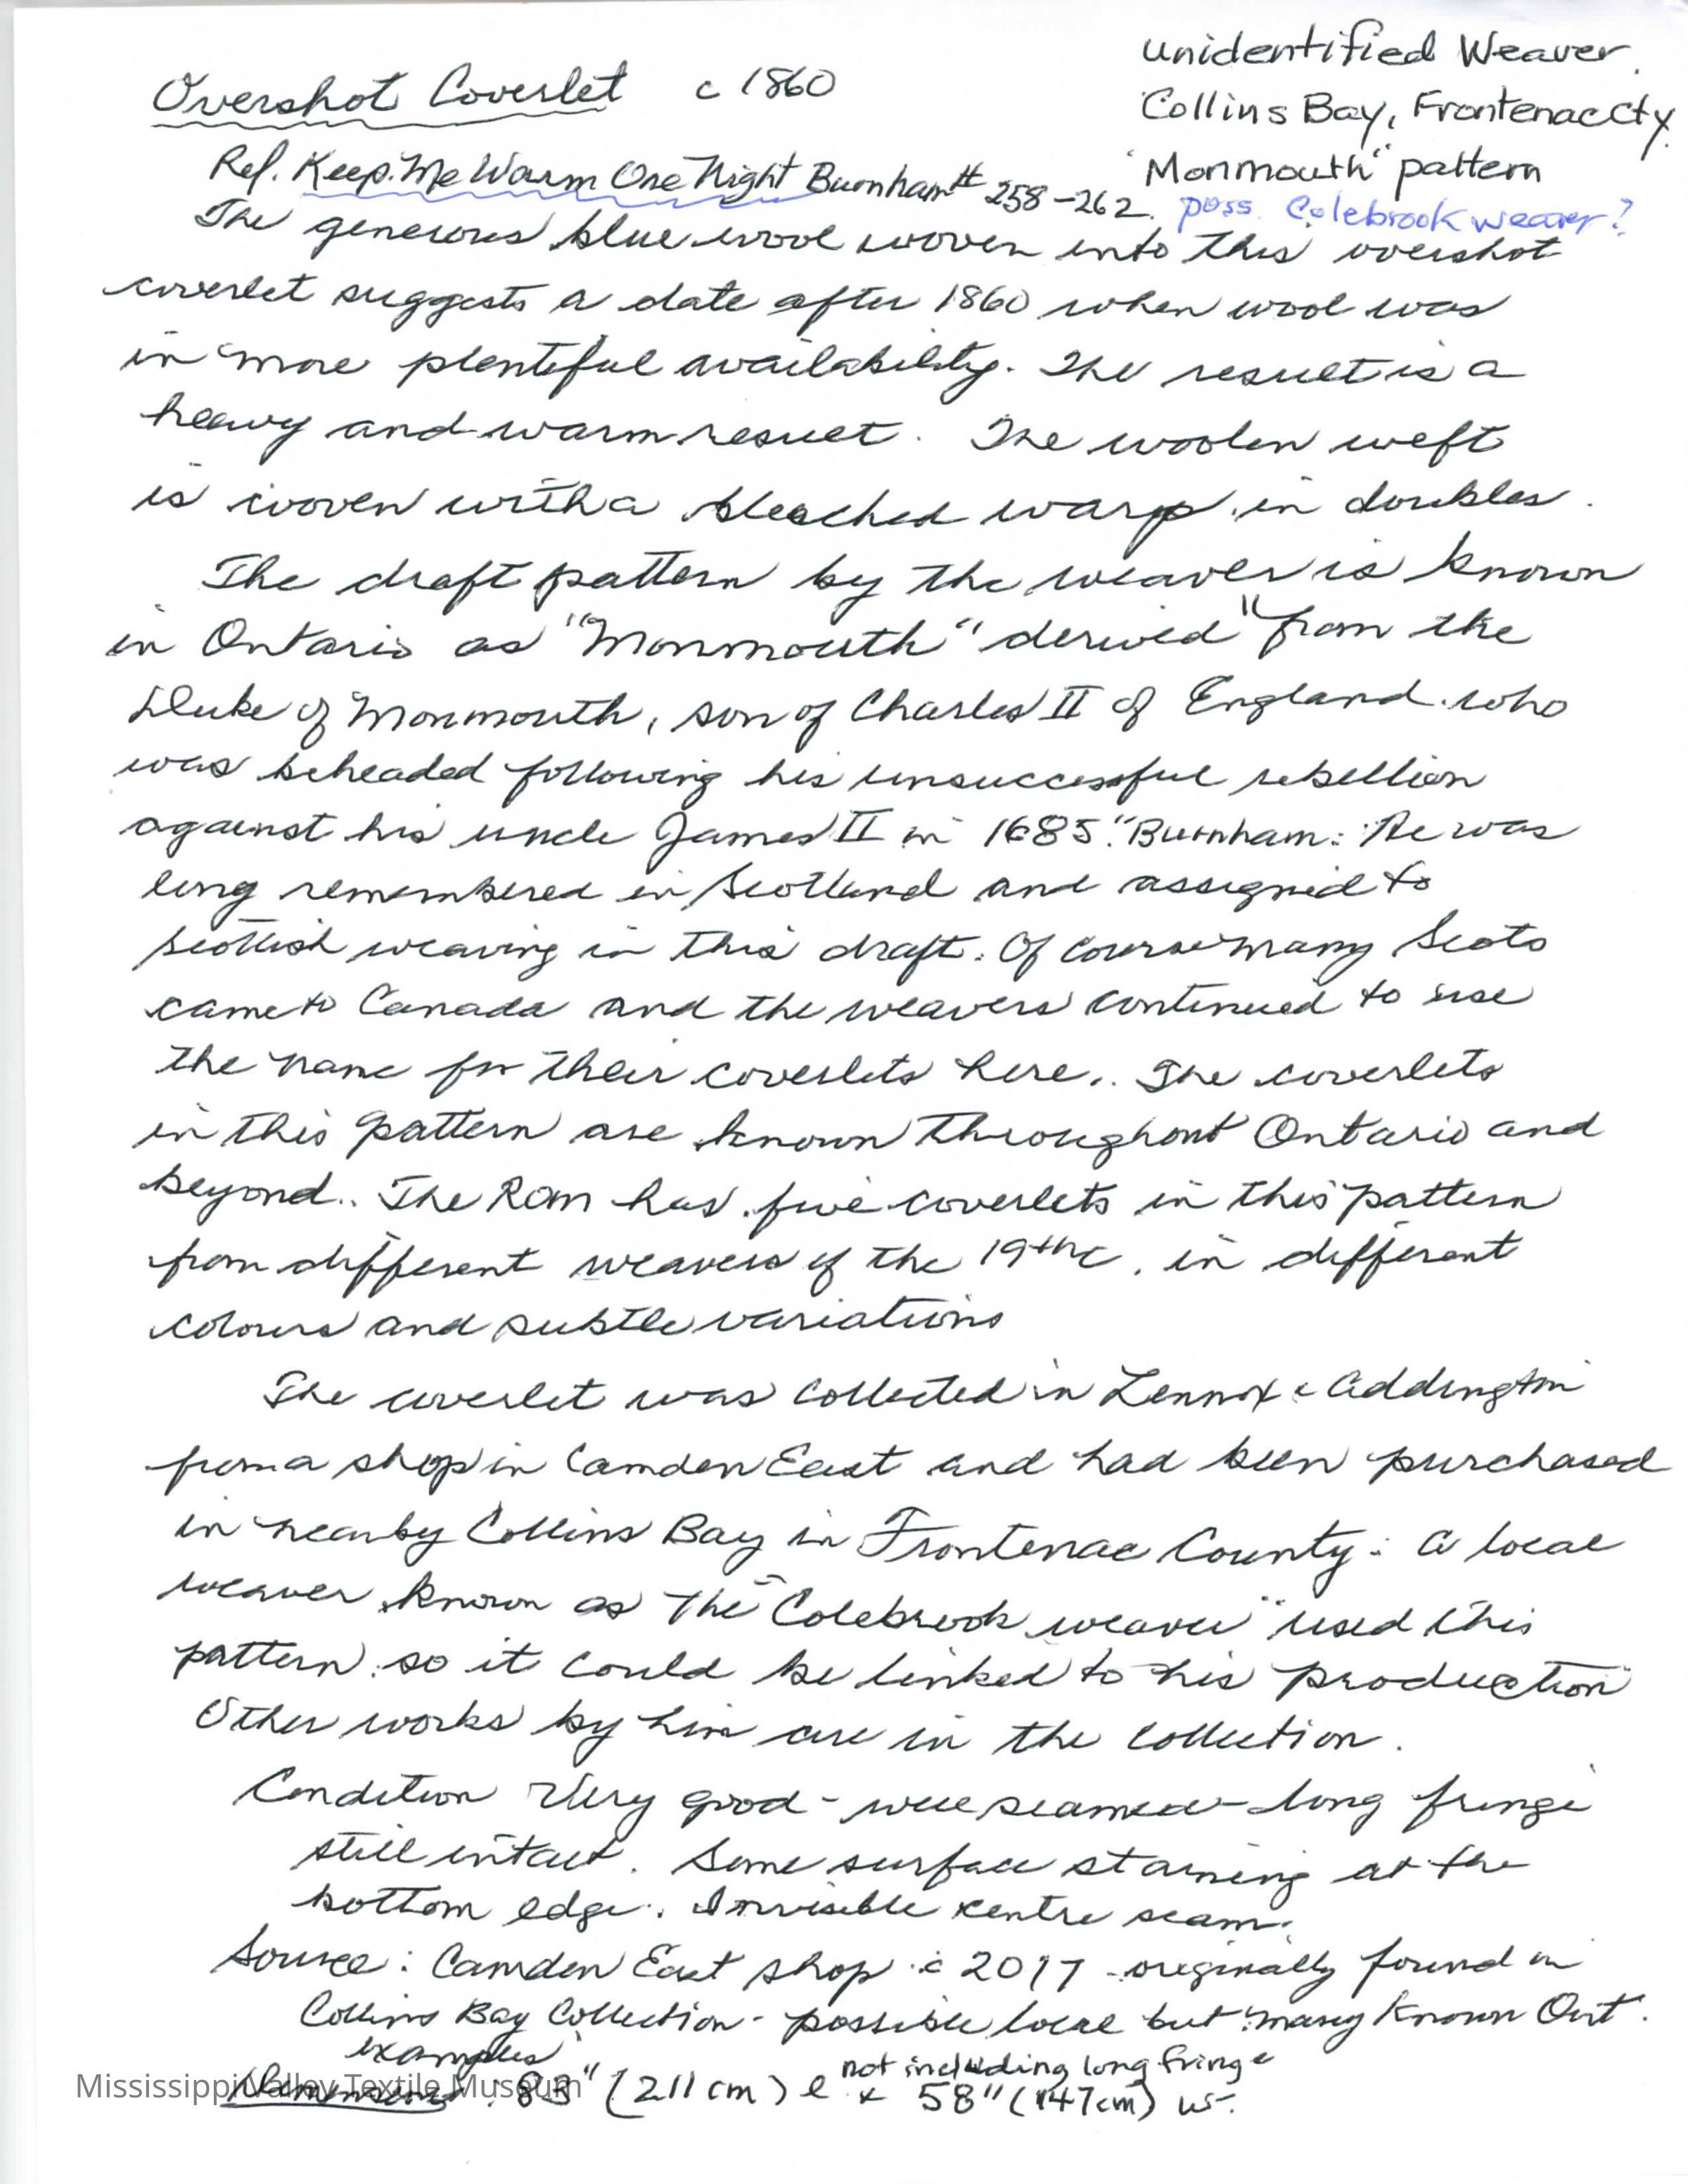 Overshot Coverlet c 1860
unidentified Weaver.
Collins Bay, Frontenac Cty.
"Monmouth" pattern
Ref. Keep Me Warm One Night Burnham # 258-262. poss. Colebrook weaver?
The generous blue wool woven into this overshot
coverlet suggests a date after 1860 when wool was
in more plentiful availability. The result is a
heavy and warm result. The woolen weft
is woven with a bleached warp in doubles.
The draft pattern by the weaver is known
in Ontario as "Monmouth" derived "from the
Duke of Monmouth, son of Charles II of England who
was beheaded following his unsuccessful rebellion
against his uncle James II in 1685." Burnham: He was
long remembered in Scotland and assigned to
Scottish weaving in this draft. Of course many Scots
came to Canada and the weavers continued to use
the name for their coverlets here.. The coverlets
in this pattern are known throughout Ontario and
beyond.. The Rom has five coverlets in this pattern
from different weavers of the 19thc. in different
colours and subtle variations
The coverlet was collected in Lennox & Addington
from a shop in Camden East and had been purchased
in nearby Collins Bay in Frontenac County. A local
weaver known as the "Colebrook weaver" used this
pattern so it could be linked to his production
Other works by him are in the collection.
Condition Very good - well seamed - long fringe
still intact. Some surface staining at the
bottom edge. Invisible centre seam.
Source: Camden East shop c 2017 - originally found in
Collins Bay Collection - possible local but many known Ont.
examples
not including long fringe
Dimensions: 83" (211 cm) l x 58" (147cm) w.
Mississippi Valley Textile Museum